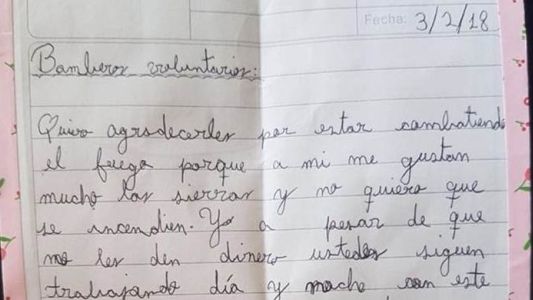 Fecha: 3/2/18
Bomberos voluntarios:
Quiero agradecerles por estar combatiendo
el fuego porque a mi me gustan
mucho las sierras y no quiero que
se incendien. Yo a pesar de que
no les den dinero ustedes siguen
trabajando día y noche con este